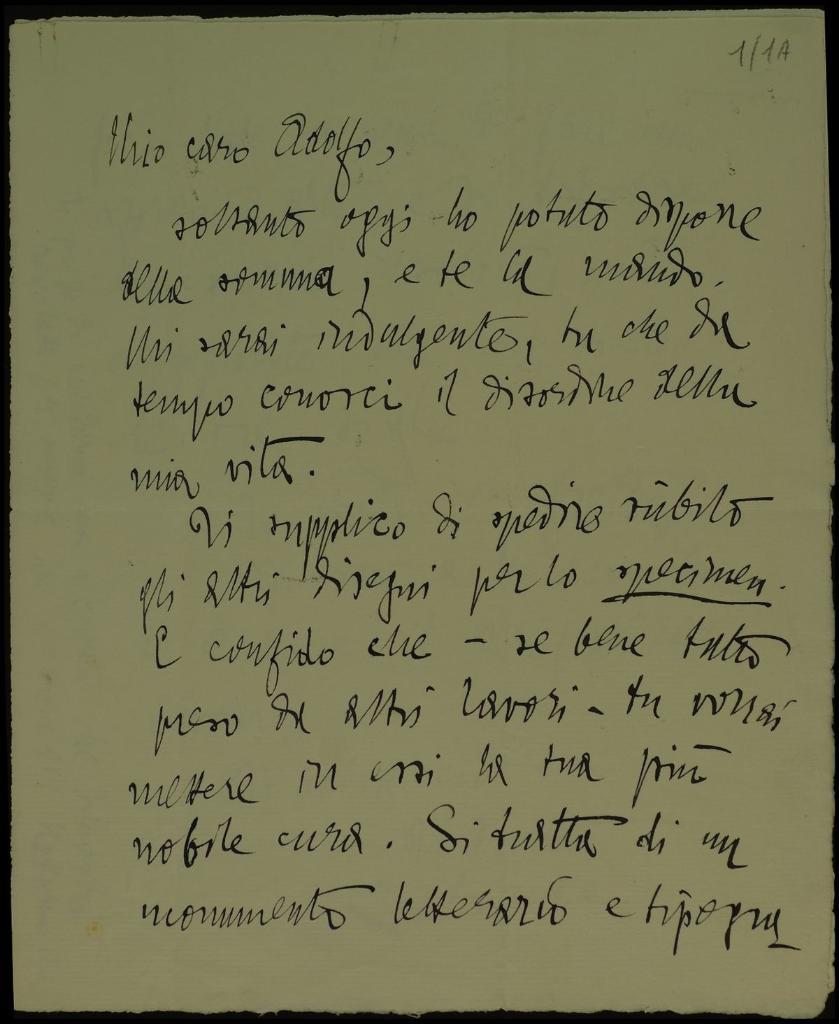 1/1A
Mio caro Adolfo,
soltanto oggi ho potuto disporre
della somma, e te la mando.
Mi sarai indulgente, tu che da
tempo conosci il disordine della
mia vita.
Ti supplico di spedire sùbito
gli altri disegni per lo specimen.
E confido che – se bene tutto
preso da altri lavori – tu vorrai
mettere in essi la tua più
nobile cura. Si tratta di un
monumento letterario e tipogra_